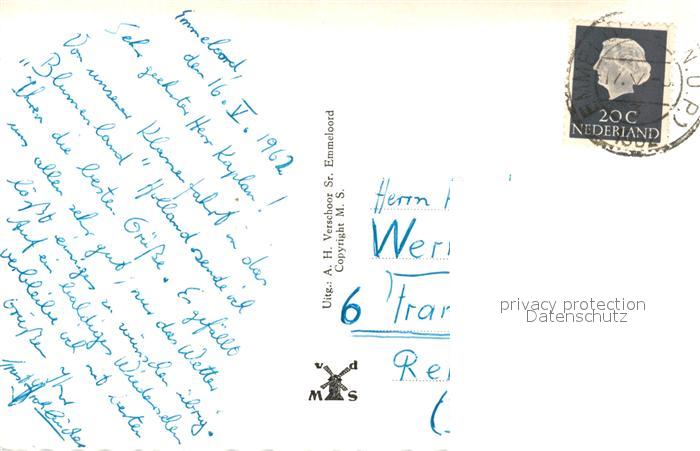 Emmeloord,
den 16. V. 1962
Sehr geehrter Herr Kaplan!
Von unserer Klassenfahrt in das
"Blumenland" Holland sende ich
Ihnen die besten Grüße. Es gefällt
uns allen sehr gut, nur das Wetter
läßt einiges zu wünschen übrig.
Auf ein baldiges Wiedersehen
verbleibe ich mit besten
Grüßen Ihr
Uitg.: A. H. Verschoor Sr. Emmeloord
Copyright M. S.
v d
M S
20 C
NEDERLAND
Herrn
Wer
6 Fran
Re
(
privacy protection
Datenschutz